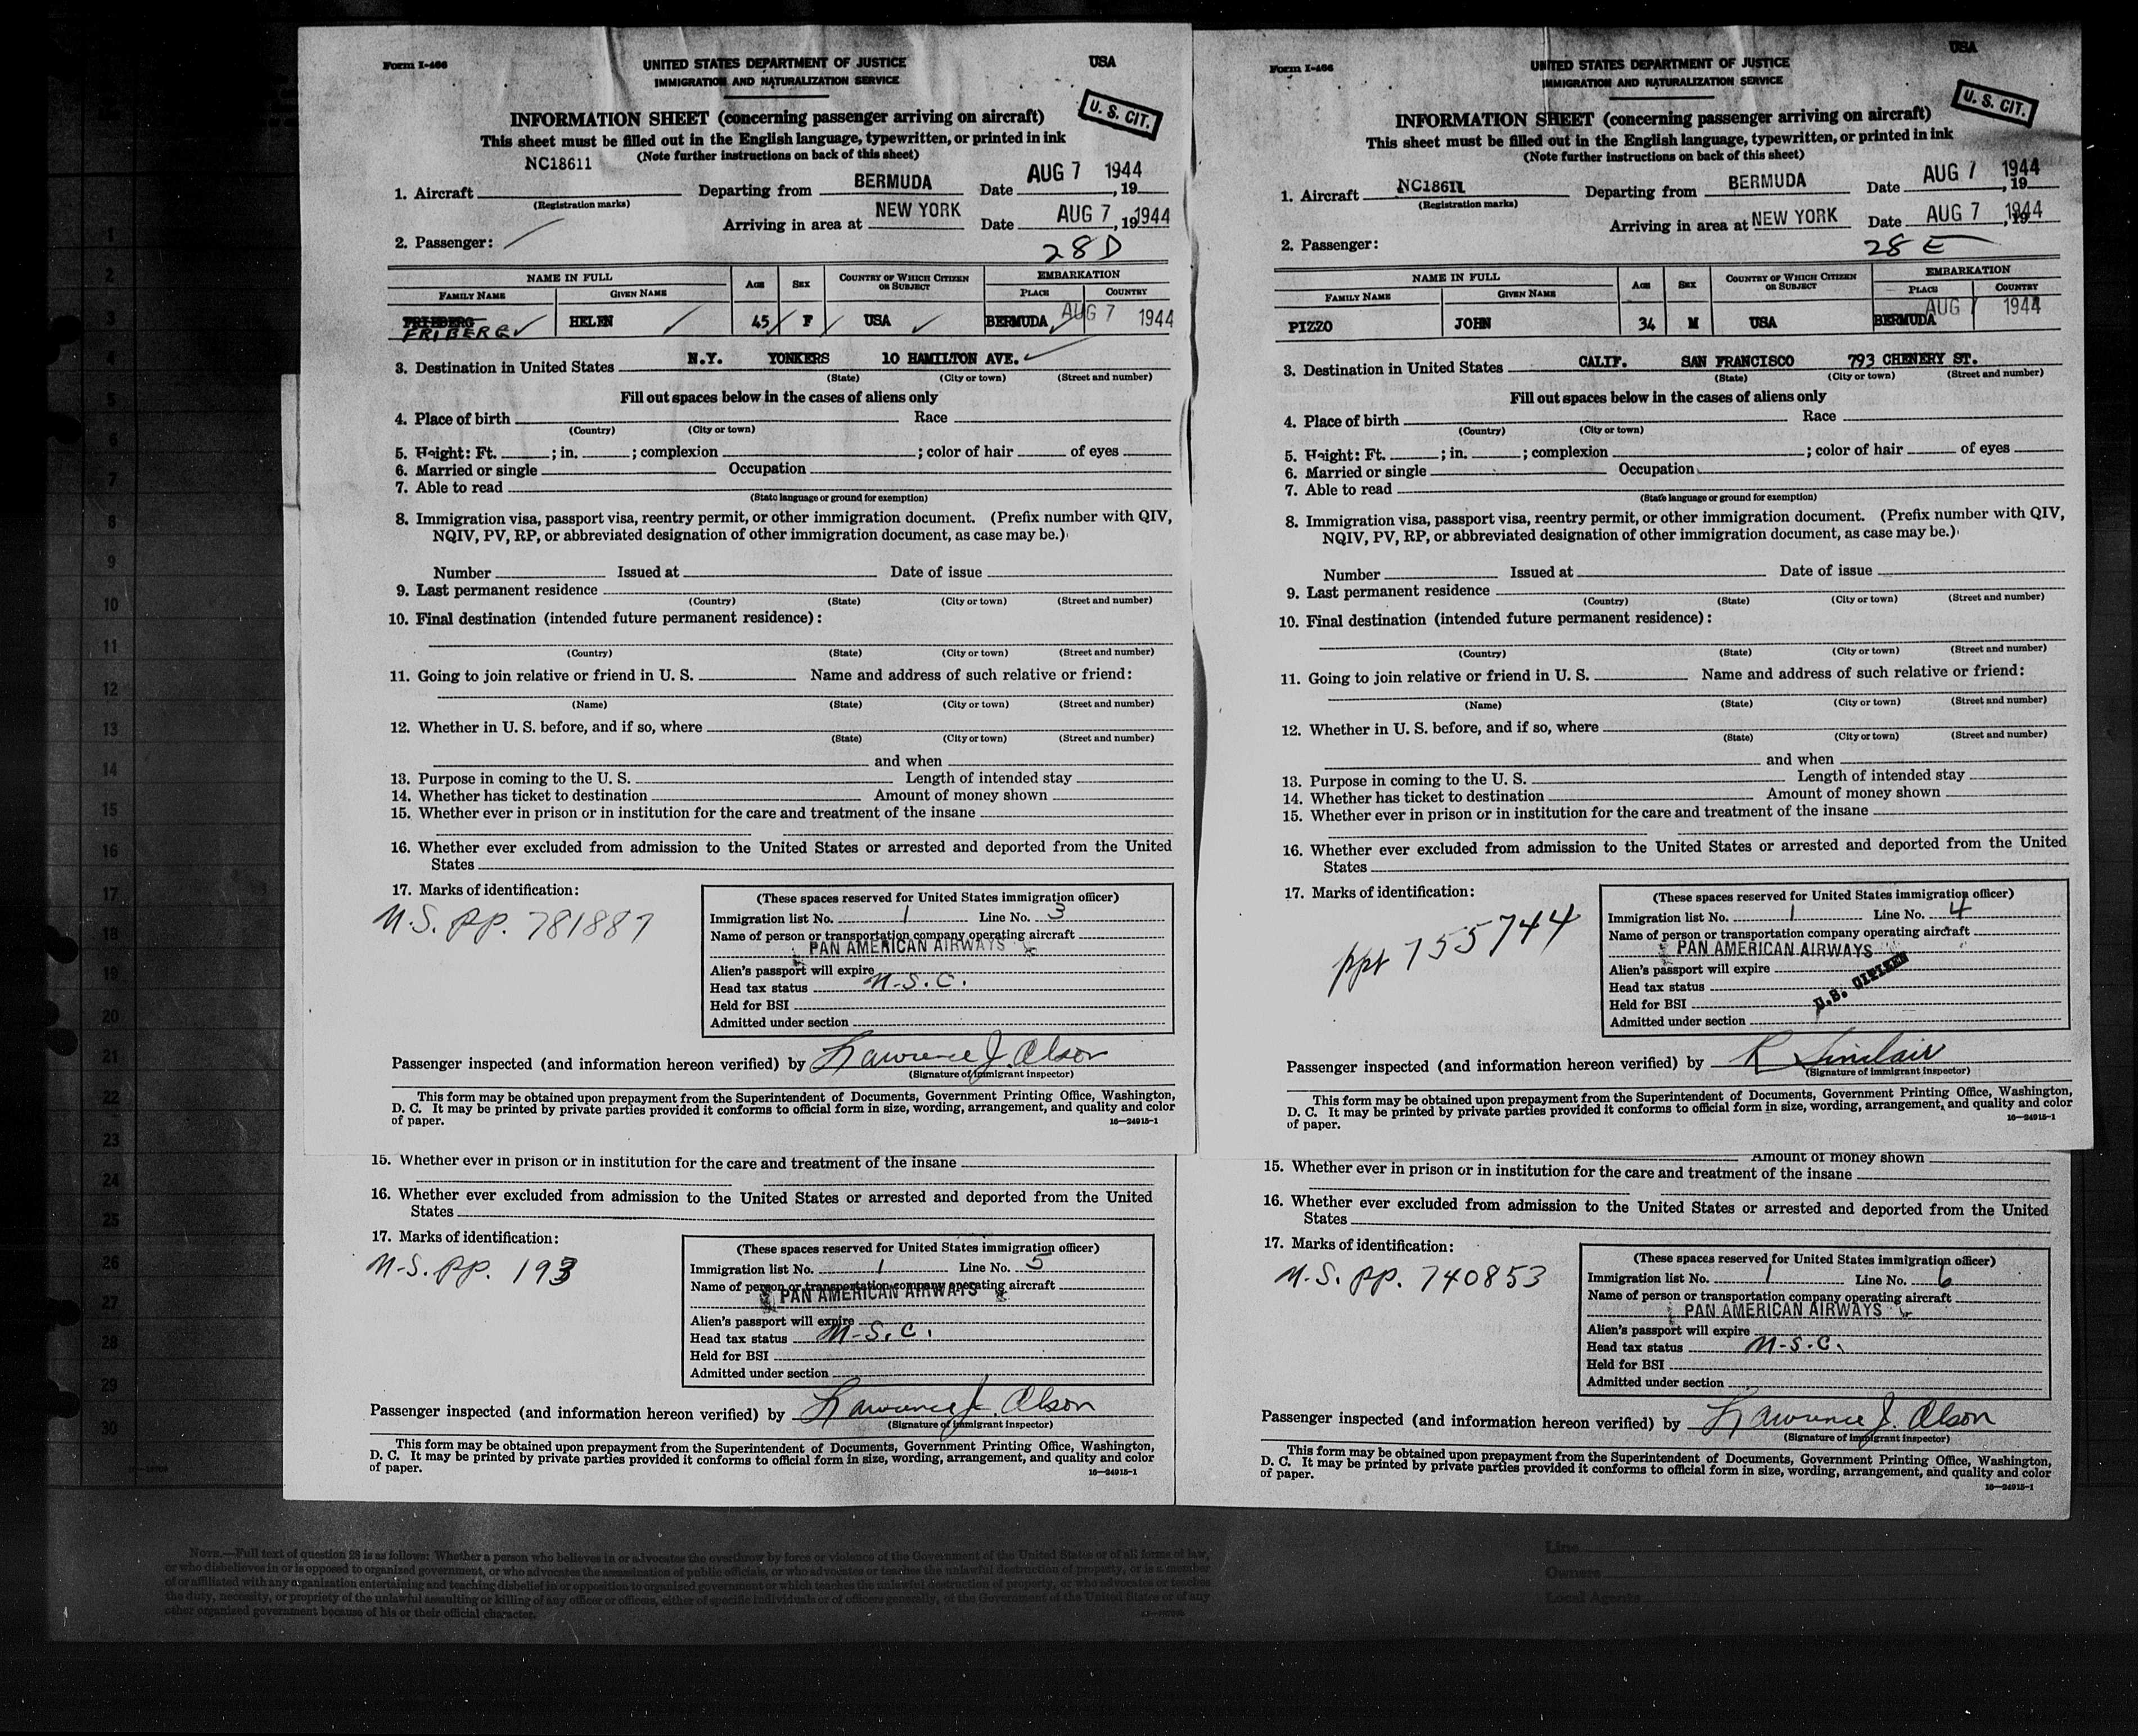 Form I-466
UNITED STATES DEPARTMENT OF JUSTICE
IMMIGRATION AND NATURALIZATION SERVICE
USA
U. S. CIT.
INFORMATION SHEET (concerning passenger arriving on aircraft)
This sheet must be filled out in the English language, typewritten, or printed in ink
(Note further instructions on back of this sheet)
NC18611
1. Aircraft Departing from BERMUDA Date AUG 7 1944, 19
(Registration marks)
Arriving in area at NEW YORK Date AUG 7, 19 1944
2. Passenger:
28D
NAME IN FULL
FAMILY NAME GIVEN NAME AGE SEX COUNTRY OF WHICH CITIZEN OR SUBJECT EMBARKATION
PLACE COUNTRY
FRIEBERG
FRIBERG HELEN 45 F USA BERMUDA AUG 7 1944
3. Destination in United States N.Y. YONKERS 10 HAMILTON AVE.
(State) (City or town) (Street and number)
Fill out spaces below in the cases of aliens only
4. Place of birth Race
(Country) (City or town)
5. Height: Ft. ; in. ; complexion ; color of hair of eyes
6. Married or single Occupation
7. Able to read
(State language or ground for exemption)
8. Immigration visa, passport visa, reentry permit, or other immigration document. (Prefix number with QIV,
NQIV, PV, RP, or abbreviated designation of other immigration document, as case may be.)
Number Issued at Date of issue
9. Last permanent residence
(Country) (State) (City or town) (Street and number)
10. Final destination (intended future permanent residence):
(Country) (State) (City or town) (Street and number)
11. Going to join relative or friend in U. S. Name and address of such relative or friend:
(Name) (State) (City or town) (Street and number)
12. Whether in U. S. before, and if so, where
(State) (City or town) (Street and number)
and when
13. Purpose in coming to the U. S. Length of intended stay
14. Whether has ticket to destination Amount of money shown
15. Whether ever in prison or in institution for the care and treatment of the insane
16. Whether ever excluded from admission to the United States or arrested and deported from the United
States
17. Marks of identification:
U.S. PP. 781887
(These spaces reserved for United States immigration officer)
Immigration list No. 1 Line No. 3
Name of person or transportation company operating aircraft
PAN AMERICAN AIRWAYS
Alien's passport will expire
Head tax status U.S.C.
Held for BSI
Admitted under section
Passenger inspected (and information hereon verified) by Lawrence J. Olson
(Signature of immigrant inspector)
This form may be obtained upon prepayment from the Superintendent of Documents, Government Printing Office, Washington,
D. C. It may be printed by private parties provided it conforms to official form in size, wording, arrangement, and quality and color
of paper.
16—24915-1
15. Whether ever in prison or in institution for the care and treatment of the insane
16. Whether ever excluded from admission to the United States or arrested and deported from the United
States
17. Marks of identification:
U.S. PP. 193
(These spaces reserved for United States immigration officer)
Immigration list No. 1 Line No. 5
Name of person or transportation company operating aircraft
PAN AMERICAN AIRWAYS
Alien's passport will expire
Head tax status U.S.C.
Held for BSI
Admitted under section
Passenger inspected (and information hereon verified) by Lawrence J. Olson
(Signature of immigrant inspector)
This form may be obtained upon prepayment from the Superintendent of Documents, Government Printing Office, Washington,
D. C. It may be printed by private parties provided it conforms to official form in size, wording, arrangement, and quality and color
of paper.
16—24915-1
Form I-466
UNITED STATES DEPARTMENT OF JUSTICE
IMMIGRATION AND NATURALIZATION SERVICE
USA
U. S. CIT.
INFORMATION SHEET (concerning passenger arriving on aircraft)
This sheet must be filled out in the English language, typewritten, or printed in ink
(Note further instructions on back of this sheet)
1. Aircraft NC18611 Departing from BERMUDA Date AUG 7 1944, 19
(Registration marks)
Arriving in area at NEW YORK Date AUG 7, 19 1944
2. Passenger:
28E
NAME IN FULL
FAMILY NAME GIVEN NAME AGE SEX COUNTRY OF WHICH CITIZEN OR SUBJECT EMBARKATION
PLACE COUNTRY
PIZZO JOHN 34 M USA BERMUDA AUG 7 1944
3. Destination in United States CALIF. SAN FRANCISCO 793 CHENERY ST.
(State) (City or town) (Street and number)
Fill out spaces below in the cases of aliens only
4. Place of birth Race
(Country) (City or town)
5. Height: Ft. ; in. ; complexion ; color of hair of eyes
6. Married or single Occupation
7. Able to read
(State language or ground for exemption)
8. Immigration visa, passport visa, reentry permit, or other immigration document. (Prefix number with QIV,
NQIV, PV, RP, or abbreviated designation of other immigration document, as case may be.)
Number Issued at Date of issue
9. Last permanent residence
(Country) (State) (City or town) (Street and number)
10. Final destination (intended future permanent residence):
(Country) (State) (City or town) (Street and number)
11. Going to join relative or friend in U. S. Name and address of such relative or friend:
(Name) (State) (City or town) (Street and number)
12. Whether in U. S. before, and if so, where
(State) (City or town) (Street and number)
and when
13. Purpose in coming to the U. S. Length of intended stay
14. Whether has ticket to destination Amount of money shown
15. Whether ever in prison or in institution for the care and treatment of the insane
16. Whether ever excluded from admission to the United States or arrested and deported from the United
States
17. Marks of identification:
ppt 755744
(These spaces reserved for United States immigration officer)
Immigration list No. 1 Line No. 4
Name of person or transportation company operating aircraft
PAN AMERICAN AIRWAYS
Alien's passport will expire
Head tax status
U.S. CITIZEN
Held for BSI
Admitted under section
Passenger inspected (and information hereon verified) by R Sinclair
(Signature of immigrant inspector)
This form may be obtained upon prepayment from the Superintendent of Documents, Government Printing Office, Washington,
D. C. It may be printed by private parties provided it conforms to official form in size, wording, arrangement, and quality and color
of paper.
16—24915-1
Amount of money shown
15. Whether ever in prison or in institution for the care and treatment of the insane
16. Whether ever excluded from admission to the United States or arrested and deported from the United
States
17. Marks of identification:
U.S. PP. 740853
(These spaces reserved for United States immigration officer)
Immigration list No. 1 Line No. 6
Name of person or transportation company operating aircraft
PAN AMERICAN AIRWAYS
Alien's passport will expire
Head tax status U.S.C.
Held for BSI
Admitted under section
Passenger inspected (and information hereon verified) by Lawrence J. Olson
(Signature of immigrant inspector)
This form may be obtained upon prepayment from the Superintendent of Documents, Government Printing Office, Washington,
D. C. It may be printed by private parties provided it conforms to official form in size, wording, arrangement, and quality and color
of paper.
16—24915-1
1
2
3
4
5
6
7
8
9
10
11
12
13
14
15
16
17
18
19
20
21
22
23
24
25
26
27
28
29
30
NOTE.—Full text of question 28 is as follows: Whether a person who believes in or advocates the overthrow by force or violence of the Government of the United States or of all forms of law,
or who disbelieves in or is opposed to organized government, or who advocates the assassination of public officials, or who advocates or teaches the unlawful destruction of property, or is a member
of or affiliated with any organization entertaining and teaching disbelief in or opposition to organized government or which teaches the unlawful destruction of property, or who advocates or teaches
the duty, necessity, or propriety of the unlawful assaulting or killing of any officer or officers, either of specific individuals or of officers generally, of the Government of the United States or of any
other organized government because of his or their official character.
Line
Owners
Local Agents